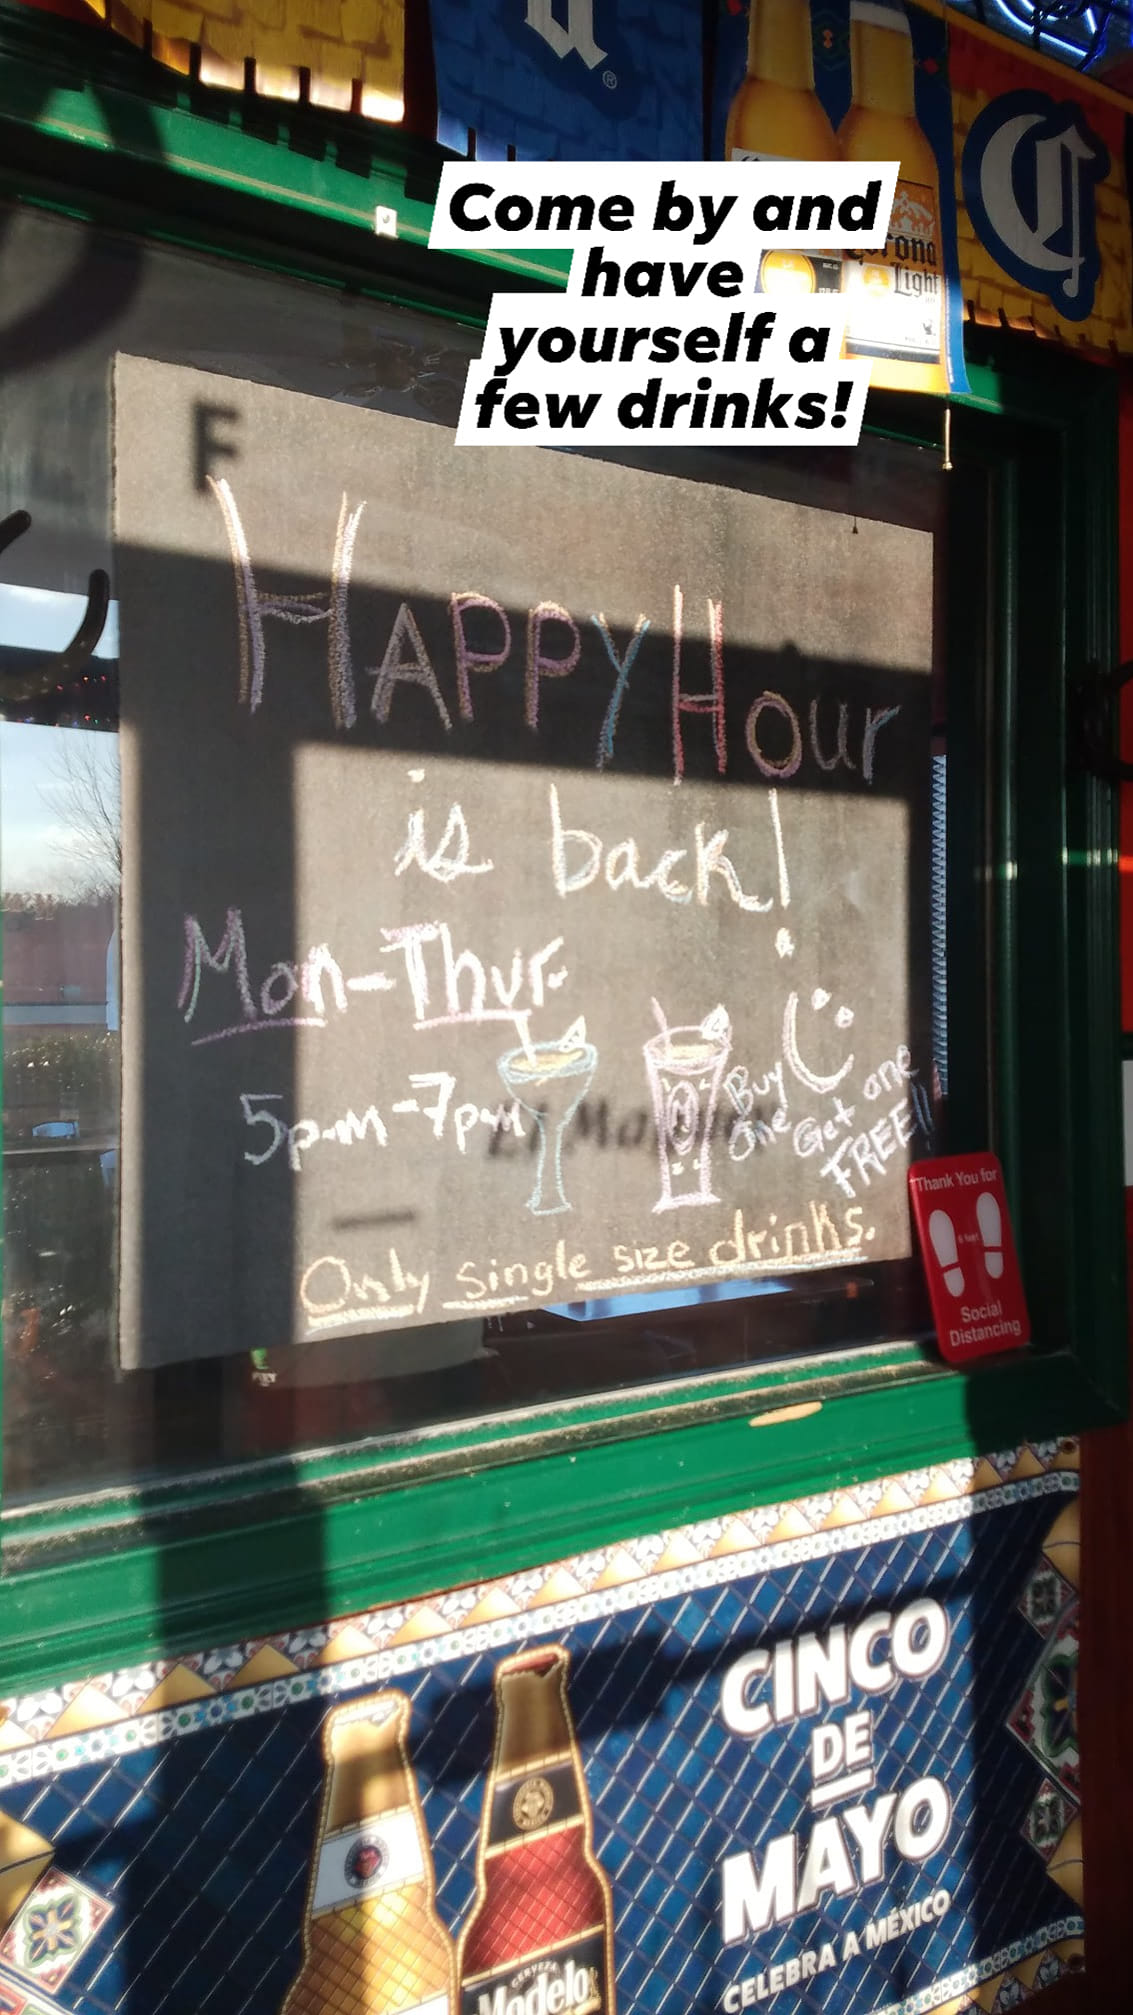 Come by and
have
yourself a
few drinks!
Corona
Light
F
HAPPY HOUR
is back!
Mon-Thur.
5pm-7pm
Buy One Get one
FREE!!
Only single size drinks.
Thank You for
6 feet
Social
Distancing
CINCO
DE
MAYO
CELEBRA A MÉXICO
CERVEZA
Modelo